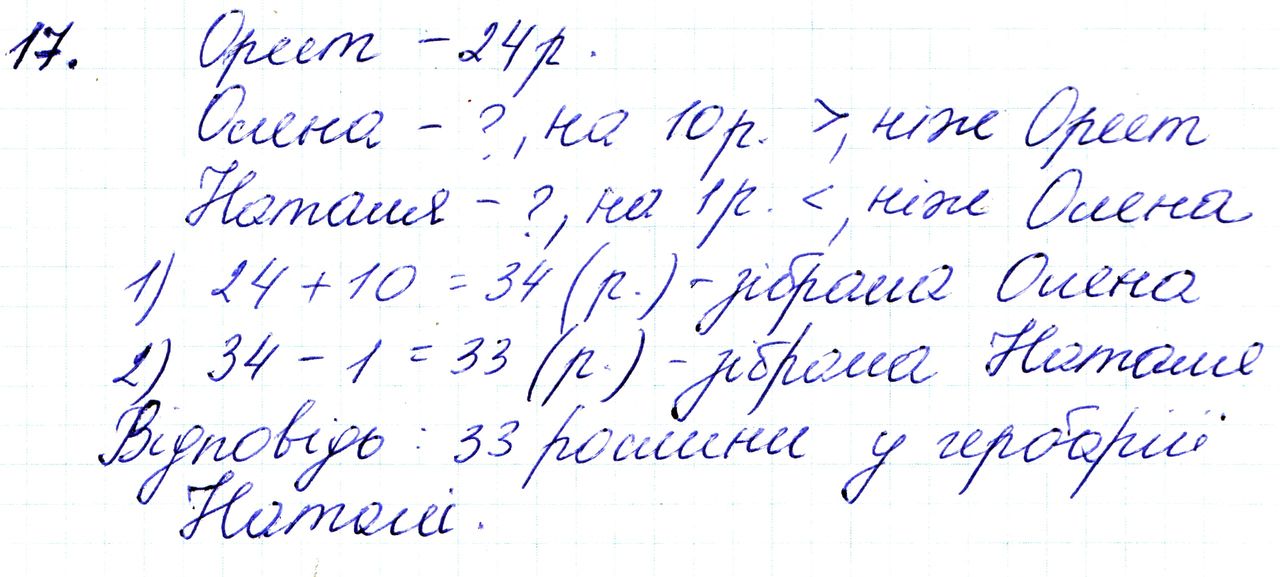 17. Орест - 24 р.
Олена - ?, на 10 р. >, ніж Орест
Наталя - ?, на 1 р. <, ніж Олена
1) 24 + 10 = 34 (р.) - зібрала Олена
2) 34 - 1 = 33 (р.) - зібрала Наталя
Відповідь : 33 рослини у гербарії
Наталі.